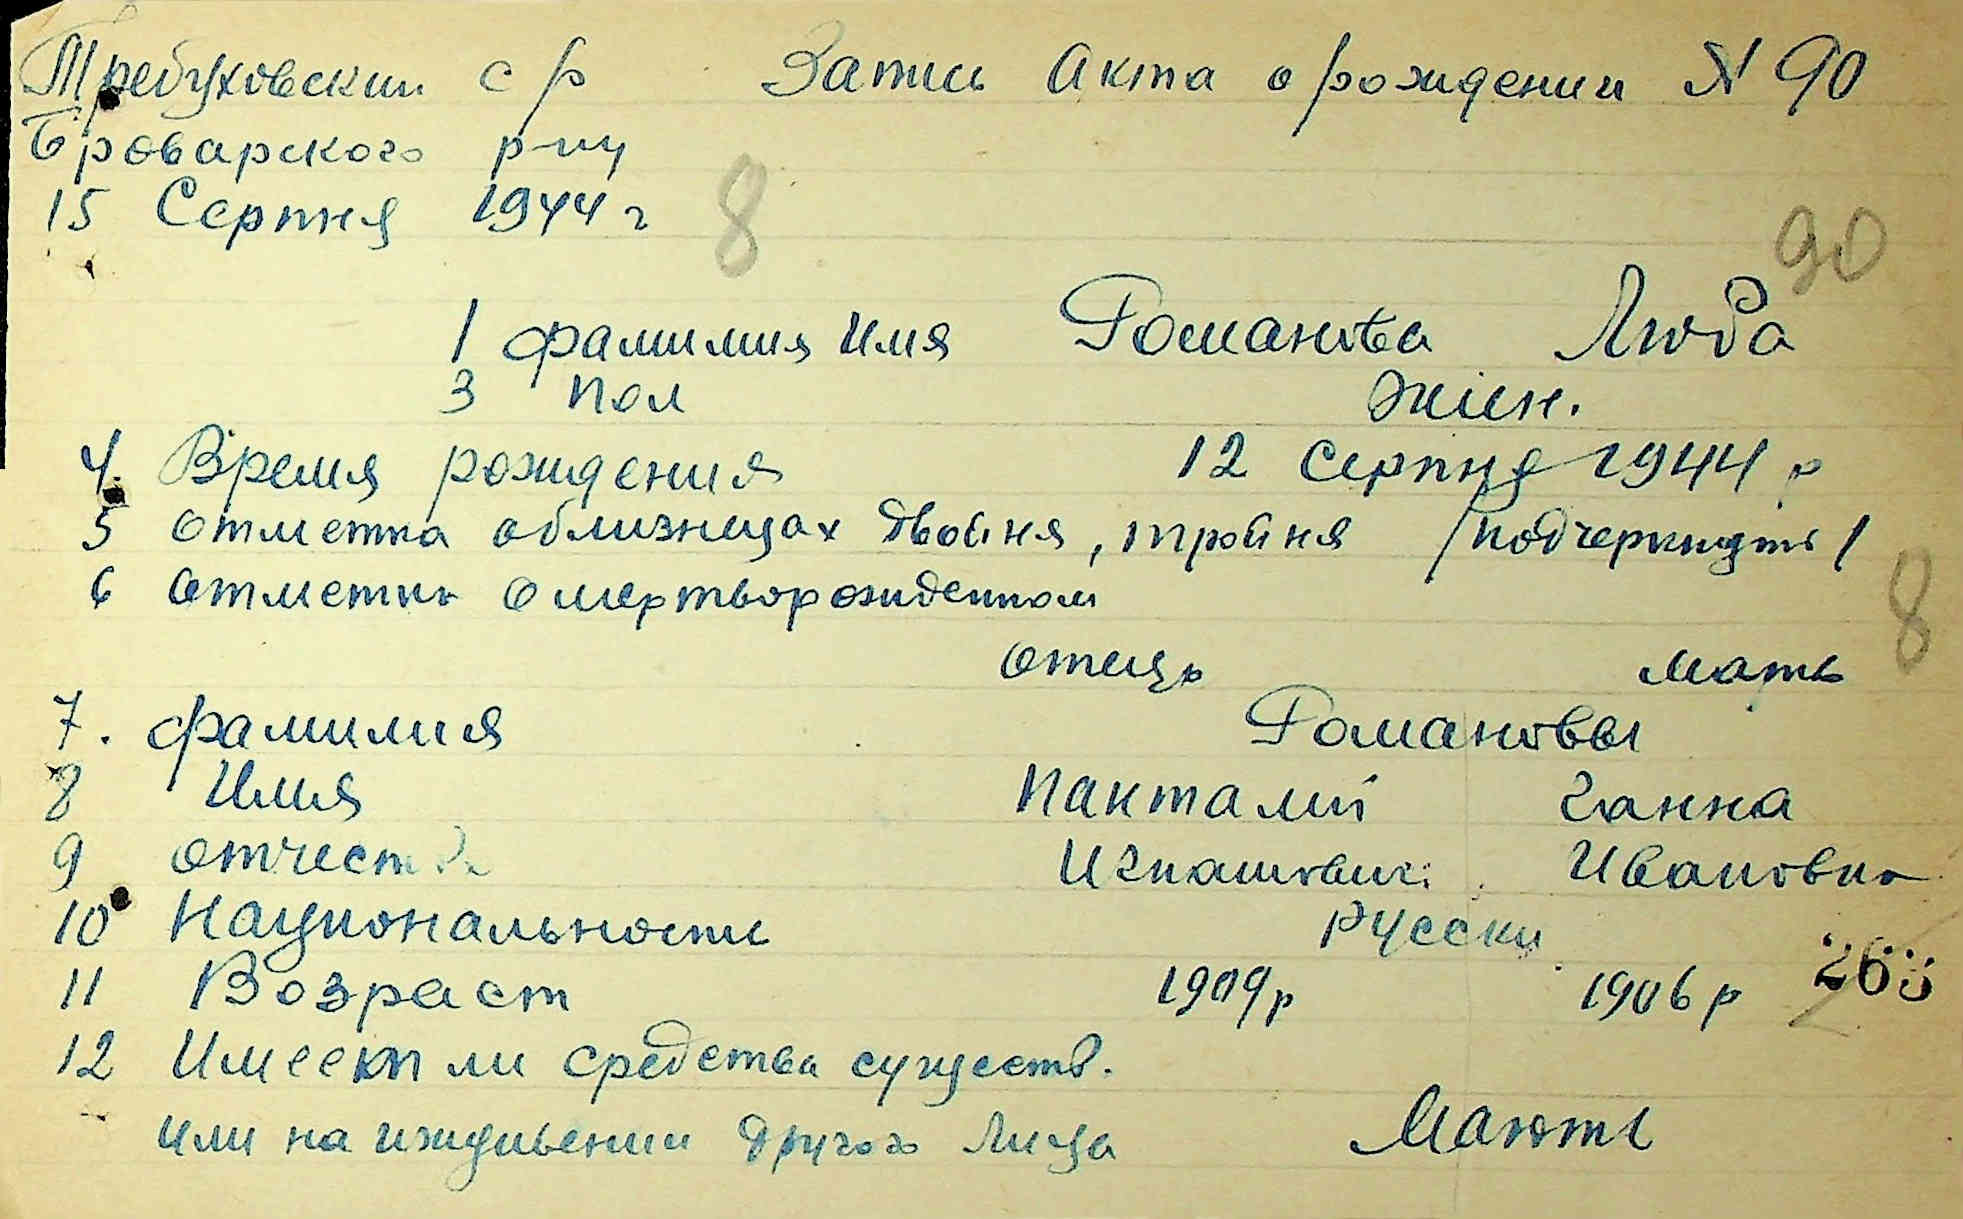 Требуховский с р Запись Акта о рождении N 90
Броварского р-ну
15 Серпня 1944 г 8
90
1 фамилия Имя Романова Люба
3 пол жін.
4. Время рождения 12 серпня 1944 р
5 отметка облизнецах двойня, тройня /подчеркнуть/
6 отметка о мертворожденном 8
отець мать
7. фамилия Романовы
8 Имя Панталій Ганна
9 отчество Игнатович Ивановна
10 Национальность русски
11 Возраст 1909 р 1906 р 263
12 Имеют ли средства существ.
или на иждивении другого Лица Мають